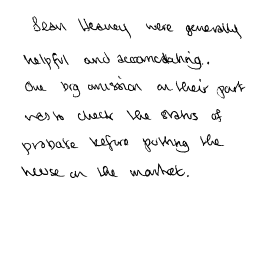 Sean Heaney were generally
helpful and accomodating.
One big omission on their part
was to check the status of
probate before putting the
house on the market.